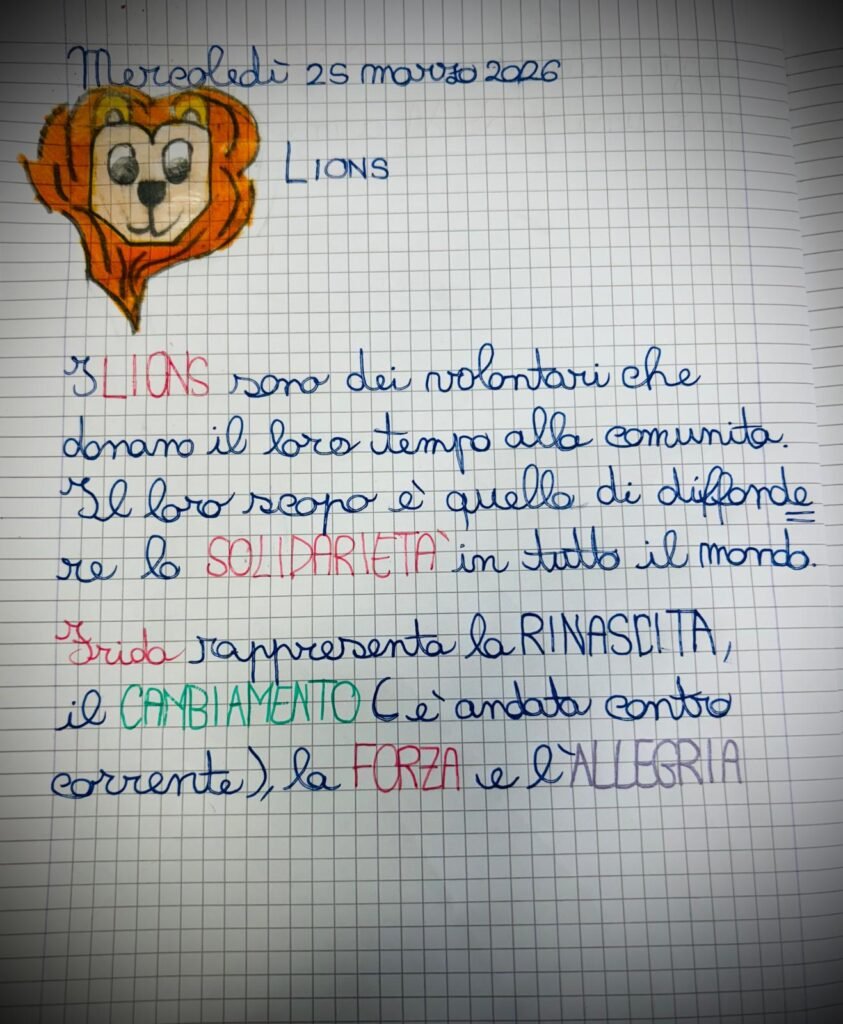 Mercoledì 25 marzo 2026
LIONS
I LIONS sono dei volontari che
donano il loro tempo alla comunita.
Il loro scopo è quello di diffonde
re la SOLIDARIETA' in tutto il mondo.
Frida rappresenta la RINASCITA,
il CAMBIAMENTO (è andata contro
corrente), la FORZA e l'ALLEGRIA